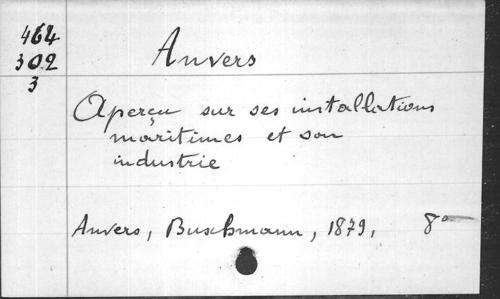 464
302
3
Anvers
Aperçu sur ses installations
maritimes et son
industrie
Anvers, Buschmann, 1879, 8°